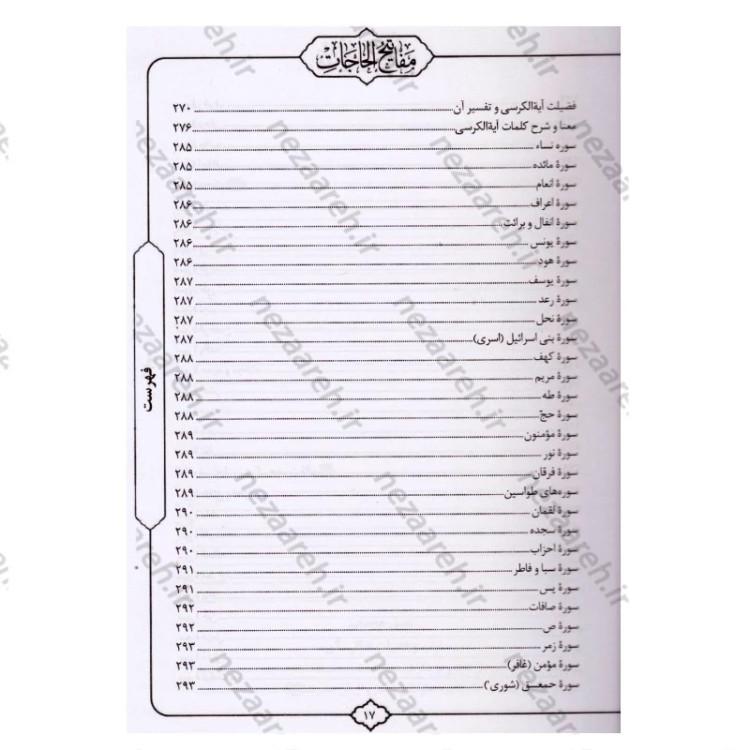 مفاتیح الحاجات
فضیلت آیةالکرسی و تفسیر آن ۲۷۰
معنا و شرح کلمات آیةالکرسی ۲۷۶
سوره نساء ۲۸۵
سورهٔ مائده ۲۸۵
سورهٔ انعام ۲۸۵
سورهٔ اعراف ۲۸۶
سورهٔ انفال و برائت ۲۸۶
سورهٔ یونس ۲۸۶
سورهٔ هود ۲۸۶
سورهٔ یوسف ۲۸۷
سورهٔ رعد ۲۸۷
سورهٔ نحل ۲۸۷
سورهٔ بنی اسرائیل (اسری) ۲۸۷
سورهٔ کهف ۲۸۸
سورهٔ مریم ۲۸۸
سورهٔ طه ۲۸۸
سورهٔ حجّ ۲۸۸
سورهٔ مؤمنون ۲۸۹
سورهٔ نور ۲۸۹
سورهٔ فرقان ۲۸۹
سوره‌های طواسین ۲۸۹
سورهٔ لقمان ۲۹۰
سورهٔ سجده ۲۹۰
سورهٔ احزاب ۲۹۰
سورهٔ سبا و فاطر ۲۹۱
سورهٔ یس ۲۹۱
سورهٔ صافات ۲۹۲
سورهٔ ص ۲۹۲
سورهٔ زمر ۲۹۳
سورهٔ مؤمن (غافر) ۲۹۳
سورهٔ حمعسق (شوری) ۲۹۳
فهرست
۱۷
nezaareh.ir